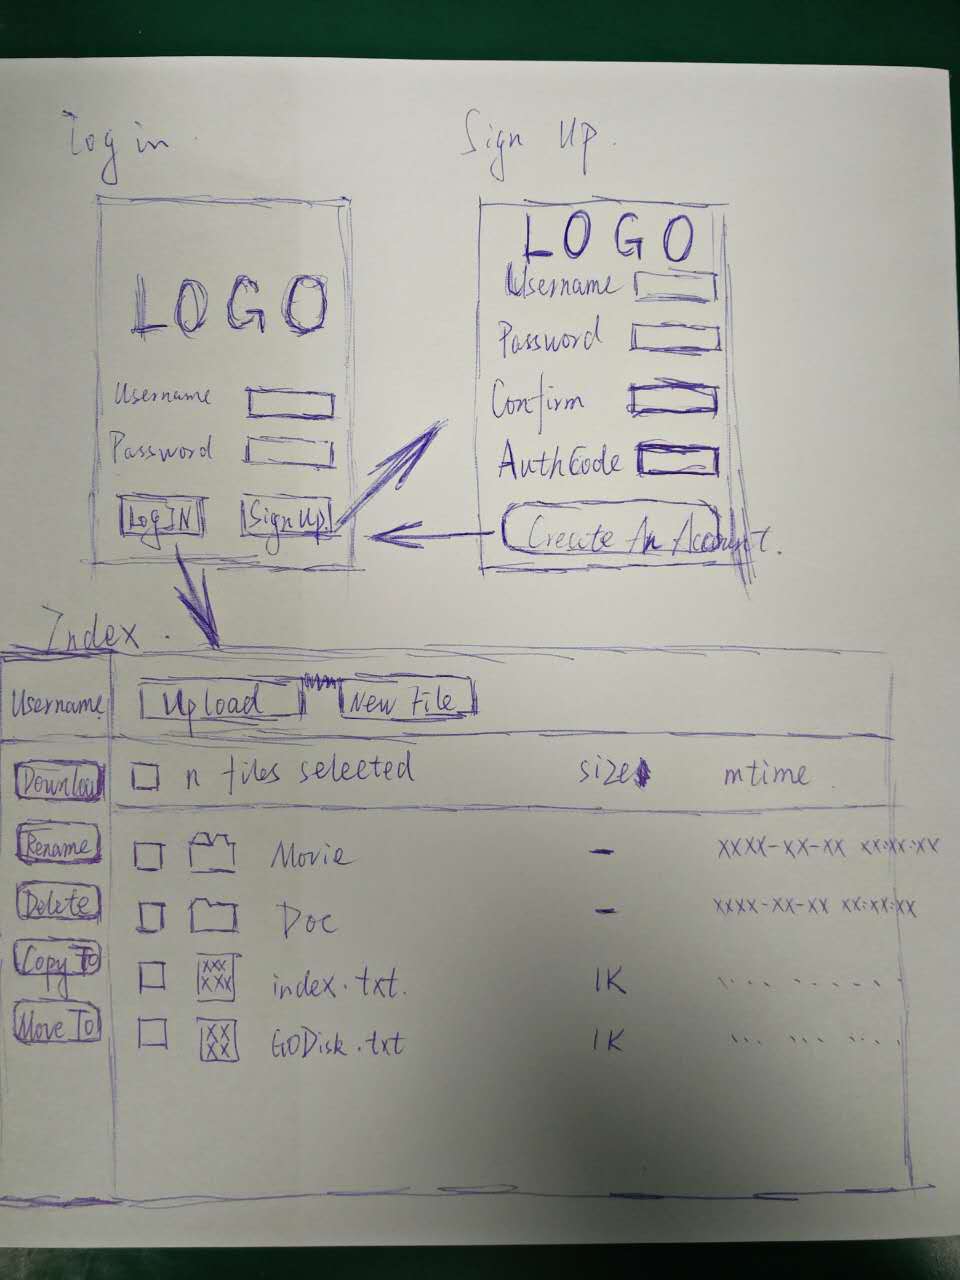 Log in.
Sign Up.
LOGO
Username
Password
Log IN
Sign Up.
LOGO
Username
Password
Confirm
AuthCode
Create An Account.
Index.
Username
Upload
New File
Download
Rename
Delete
Copy To
Move To
n files selected
size
mtime
Movie
-
xxxx-xx-xx xx:xx:xx
Doc
-
xxxx-xx-xx xx:xx:xx
xxx
xxx
index.txt.
1K
xx
xx
GODisk.txt
1K